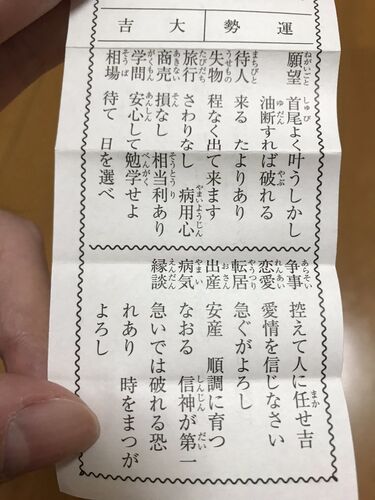 運勢 大吉
願望 首尾よく叶うしかし
油断すれば破れる
待人 来る たよりあり
失物 程なく出て来ます
旅行 さわりなし 病用心
商売 損なし 相当利あり
学問 安心して勉学せよ
相場 待て 日を選べ
争事 控えて人に任せ吉
恋愛 愛情を信じなさい
転居 急ぐがよろし
出産 安産 順調に育つ
病気 なおる 信神が第一
縁談 急いでは破れる恐
れあり 時をまつが
よろし